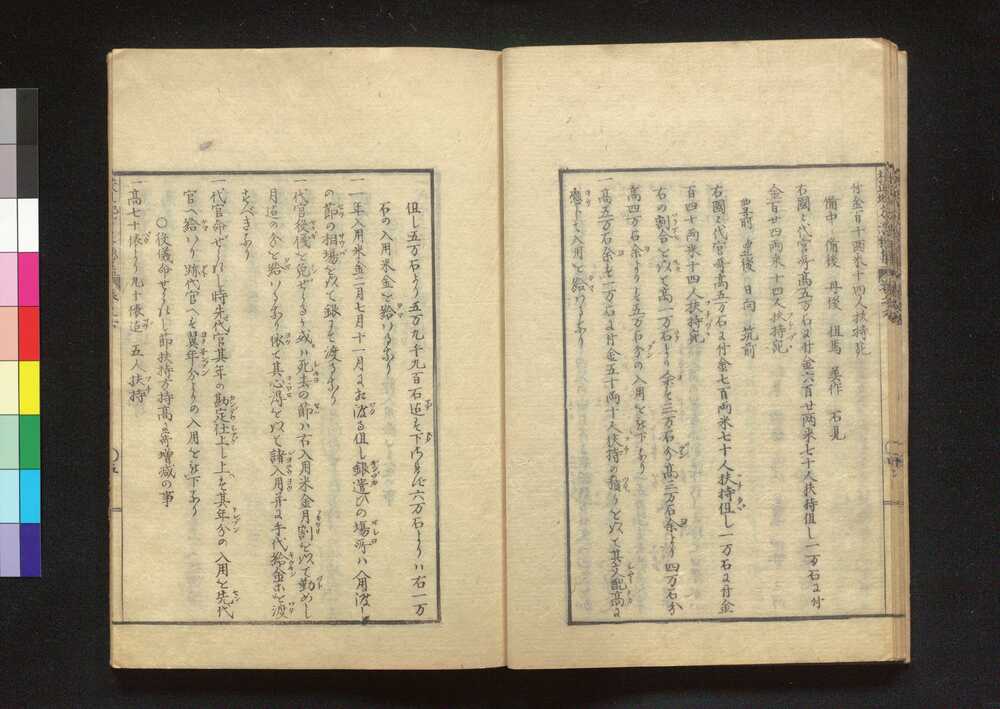 付金百十両米十四人扶持宛
備中 備後 丹後 但馬 美作 石見
右國之代官所高五万石ニ付金六百廿両米七十人扶持但し一万石ニ付
金百廿四両米十四人扶持宛
豊前 豊後 日向 筑前
右國之代官所高五万石ニ付金七百両米七十人扶持但し一万石ニ付金
百四十両米十四人扶持宛
右の割合を以て高一万石より 余を三万石分高三万石余より四万石分
高四万石余よりを五万石分の入用を被下あり
一高五万石余を一万石ニ付金五十両十人扶持の積りを以て其支配高ニ
應して入用を給ふあり
但し五万石より五万九千九百石迄を下 六万石よりハ右一万
石の入用米金を給ハるあり
一一年入用米金二月七月十一月ニお渡る但し銀遣ひの場所ハ入用渡し
の節の相場を以て銀にて渡るあり
一代官役儀を免ぜらるゝ或ハ死去の節ハ右入用米金月割を以て勤めし
月迄の分を給ハるあり依て其心得を以て諸入用并ニ手代給金ホを渡
すべきあり
一代官命ぜられし時先代官其年の勘定仕上し上ハを其年分の入用を先代
官へ給ハり跡代官へを翼年分よりの入用を被下あり
〇役儀命せられし節扶持方持高ニ寄増減の事
一高七十俵より九十俵迄 五人扶持